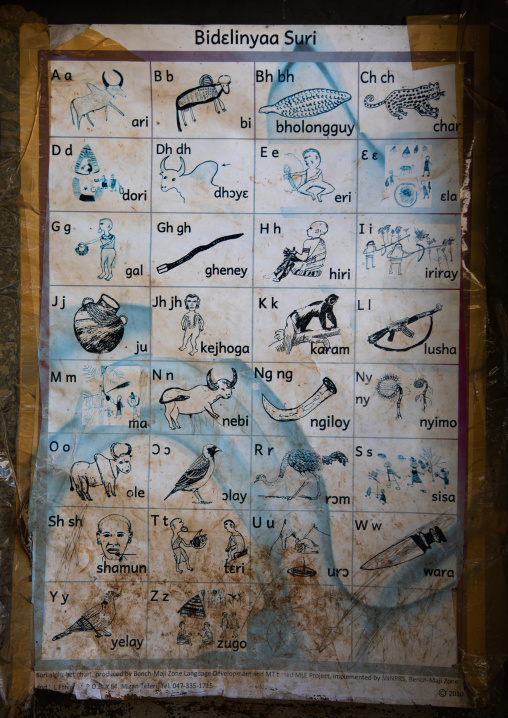 Bidɛlinyaa Suri
A a
ari
B b
bi
Bh bh
bholongguy
Ch ch
char
D d
dori
Dh dh
dhɔyɛ
E e
eri
Ɛ ɛ
ɛla
G g
gal
Gh gh
gheney
H h
hiri
I i
iriray
J j
ju
Jh jh
kejhoga
K k
karam
L l
lusha
M m
ma
N n
nebi
Ng ng
ngiloy
Ny
ny
nyimo
O o
ole
Ɔ ɔ
ɔlay
R r
rɔm
S s
sisa
Sh sh
shamun
T t
tɛri
U u
urɔ
W w
wara
Y y
yelay
Z z
zugo
Suri alphabet chart, produced by Bench-Maji Zone Language Development and MT MLE Project, implemented by Bench-Maji Zone
Mizan Teferi, Tel. 047-335-1715
© 2010